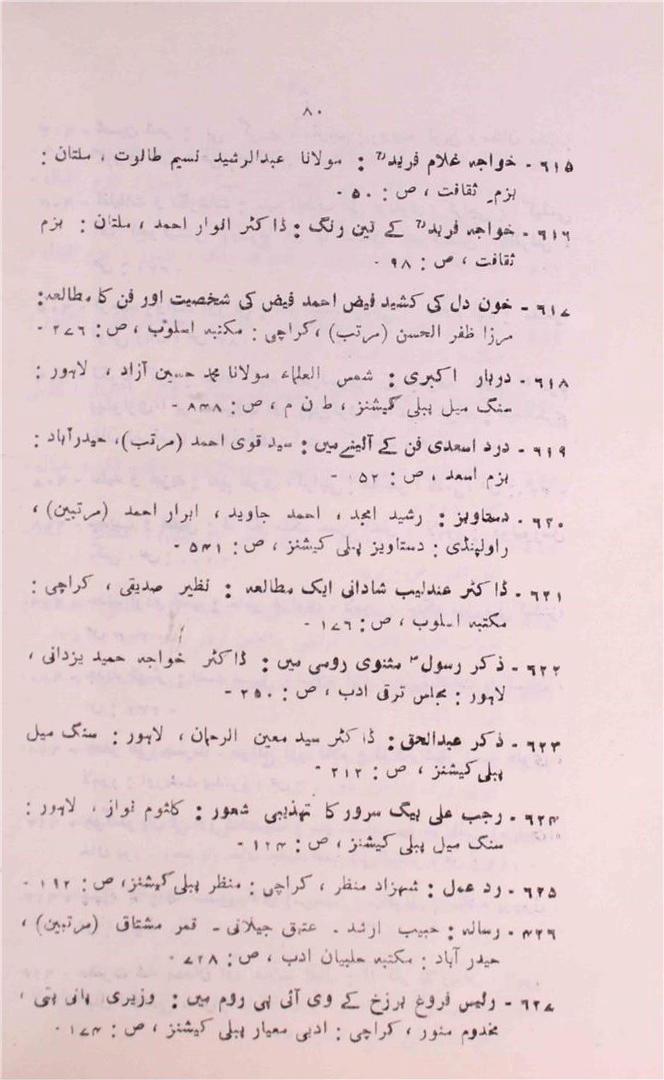 ۸۰
۶۱۵ - خواجہ غلام فریدؒ : مولانا عبدالرشید نسیم طالوت ، ملتان :
بزمِ ثقافت ، ص : ۵۰ -
۶۱۶ - خواجہ فریدؒ کے تین رنگ : ڈاکٹر انوار احمد ، ملتان : بزم
ثقافت ، ص : ۹۸ -
۶۱۷ - خون دل کی کشید فیض احمد فیض کی شخصیت اور فن کا مطالعہ:
مرزا ظفر الحسن (مرتب) ، کراچی : مکتبہ اسلوب ، ص : ۲۷۶ -
۶۱۸ - دربار اکبری : شمس العلماء مولانا محمد حسین آزاد ، لاہور :
سنگ میل پبلی کیشنز ، ط ن م ، ص : ۸۴۸ -
۶۱۹ - درد اسعدی فن کے آئینے میں : سید قوی احمد (مرتب) ، حیدرآباد :
بزم اسعد ، ص : ۱۵۲ -
۶۲۰ - دستاویز : رشید امجد ، احمد جاوید ، ابرار احمد (مرتبین) ،
راولپنڈی : دستاویز پبلی کیشنز ، ص : ۵۴۱ -
۶۲۱ - ڈاکٹر عندلیب شادانی ایک مطالعہ : نظیر صدیقی ، کراچی :
مکتبہ اسلوب ، ص : ۱۷۶ -
۶۲۲ - ذکر رسولؐ مثنوی رومی میں : ڈاکٹر خواجہ حمید یزدانی ،
لاہور : مجلس ترقی ادب ، ص : ۲۵۰ -
۶۲۳ - ذکر عبدالحق : ڈاکٹر سید معین الرحمان ، لاہور : سنگ میل
پبلی کیشنز ، ص : ۲۱۲ -
۶۲۴ - رجب علی بیگ سرور کا تہذیبی شعور : کلثوم نواز ، لاہور :
سنگ میل پبلی کیشنز ، ص : ۱۲۴ -
۶۲۵ - رد عمل : شہزاد منظر ، کراچی : منظر پبلی کیشنز ، ص : ۱۹۲ -
۶۲۶ - رسالہ : حبیب ارشد - عتیق جیلانی - قمر مشتاق (مرتبین) ،
حیدر آباد : مکتبہ حلبیان ادب ، ص : ۷۲۸ -
۶۲۷ - رئیس فروغ برزخ کے وی آئی پی روم میں : وزیری پانی پتی ،
مخدوم منور ، کراچی : ادبی معیار پبلی کیشنز ، ص : ۱۷۴ -